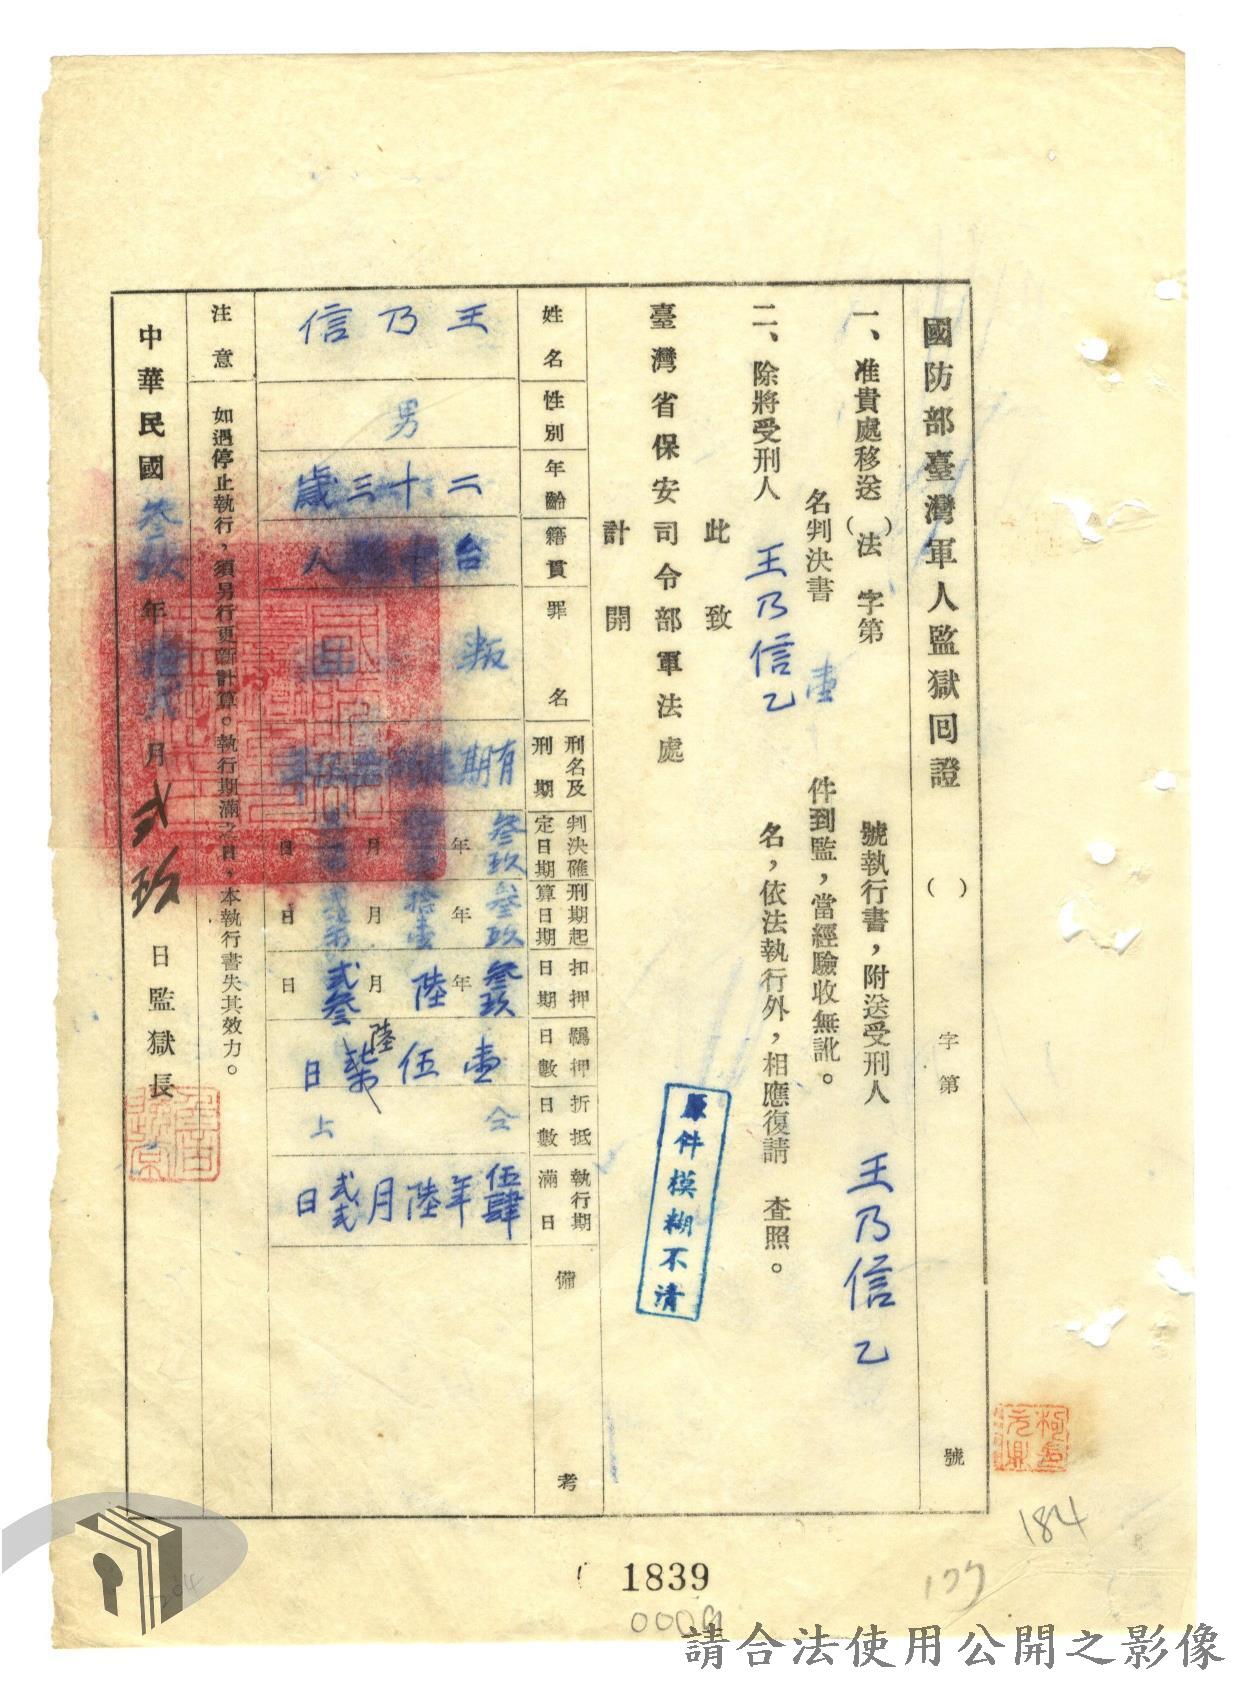 國防部臺灣軍人監獄回證 ( ) 字第 號
一、准貴處移送( )法 字第 號執行書，附送受刑人 王乃信乙
名判決書 壹 件到監，當經驗收無訛。
二、除將受刑人 王乃信乙 名，依法執行外，相應復請 查照。
此致
臺灣省保安司令部軍法處
計開
姓名 王乃信
性別 男
年齡 二十三歲
籍貫 台中縣人
罪名 叛
刑名及刑期 有期徒刑 年
判決確定日期 叁玖年 月 日
刑期起算日期 叁玖年拾壹月 日
扣押日期 叁玖年陸月弍叁日
羈押日數 壹伍柒陸日
折抵日數 仝上
執行期滿日 伍肆年陸月弍弍日
備考
注意 如遇停止執行，須另行更新計算。執行期滿之日，本執行書失其效力。
中華民國叁玖年拾弍月弍玖日監獄長
原件模糊不清
柯
184
177
204
1839
請合法使用公開之影像